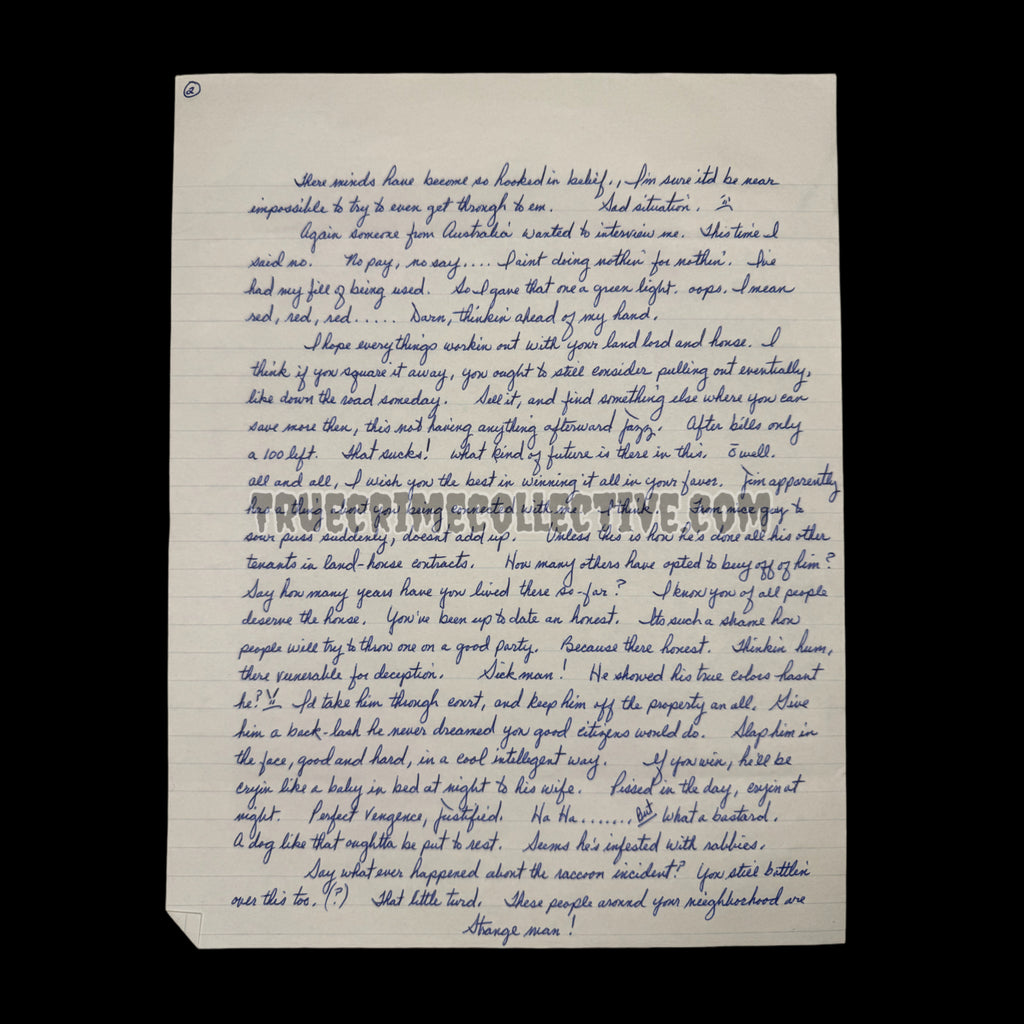 2
There minds have become so hooked in belief., I'm sure it'd be near
impossible to try to even get through to em. Sad situation.
Again someone from Australia wanted to interview me. This time I
said no. No pay, no say.... I aint doing nothin' for nothin'. I've
had my fill of being used. So I gave that one a green light. oops. I mean
red, red, red..... Darn, thinkin ahead of my hand.
I hope everything's workin out with your land lord and house. I
think if you square it away, you ought to still consider pulling out eventually,
like down the road someday. Sell it, and find something else where you can
save more then, this not having anything afterward jazz. After bills only
a 100 left. That sucks! What kind of future is there in this. O well.
all and all, I wish you the best in winning it all in your favor. Jim apparently
has a thing about you being connected with me. I think. From nice guy to
TRUECRIMECOLLECTIVE.COM
sour puss suddenly, doesnt add up. Unless this is how he's done all his other
tenants in land-house contracts. How many others have opted to buy off of him?
Say how many years have you lived there so-far? I know you of all people
deserve the house. You've been up to date an honest. Its such a shame how
people will try to throw one on a good party. Because there honest. Thinkin hum,
there vunerable for deception. Sick man! He showed his true colors hasnt
he? I'd take him through court, and keep him off the property an all. Give
him a back-lash he never dreamed you good citizens would do. Slap him in
the face, good and hard, in a cool intelligent way. If you win, he'll be
cryin like a baby in bed at night to his wife. Pissed in the day, cryin at
night. Perfect vengence, justified. Ha Ha....... But what a bastard.
A dog like that oughtta be put to rest. Seems he's infested with rabbies.
Say what ever happened about the raccoon incident? You still battlin
over this too. (?) That little turd. These people around your nieghborhood are
Strange man!